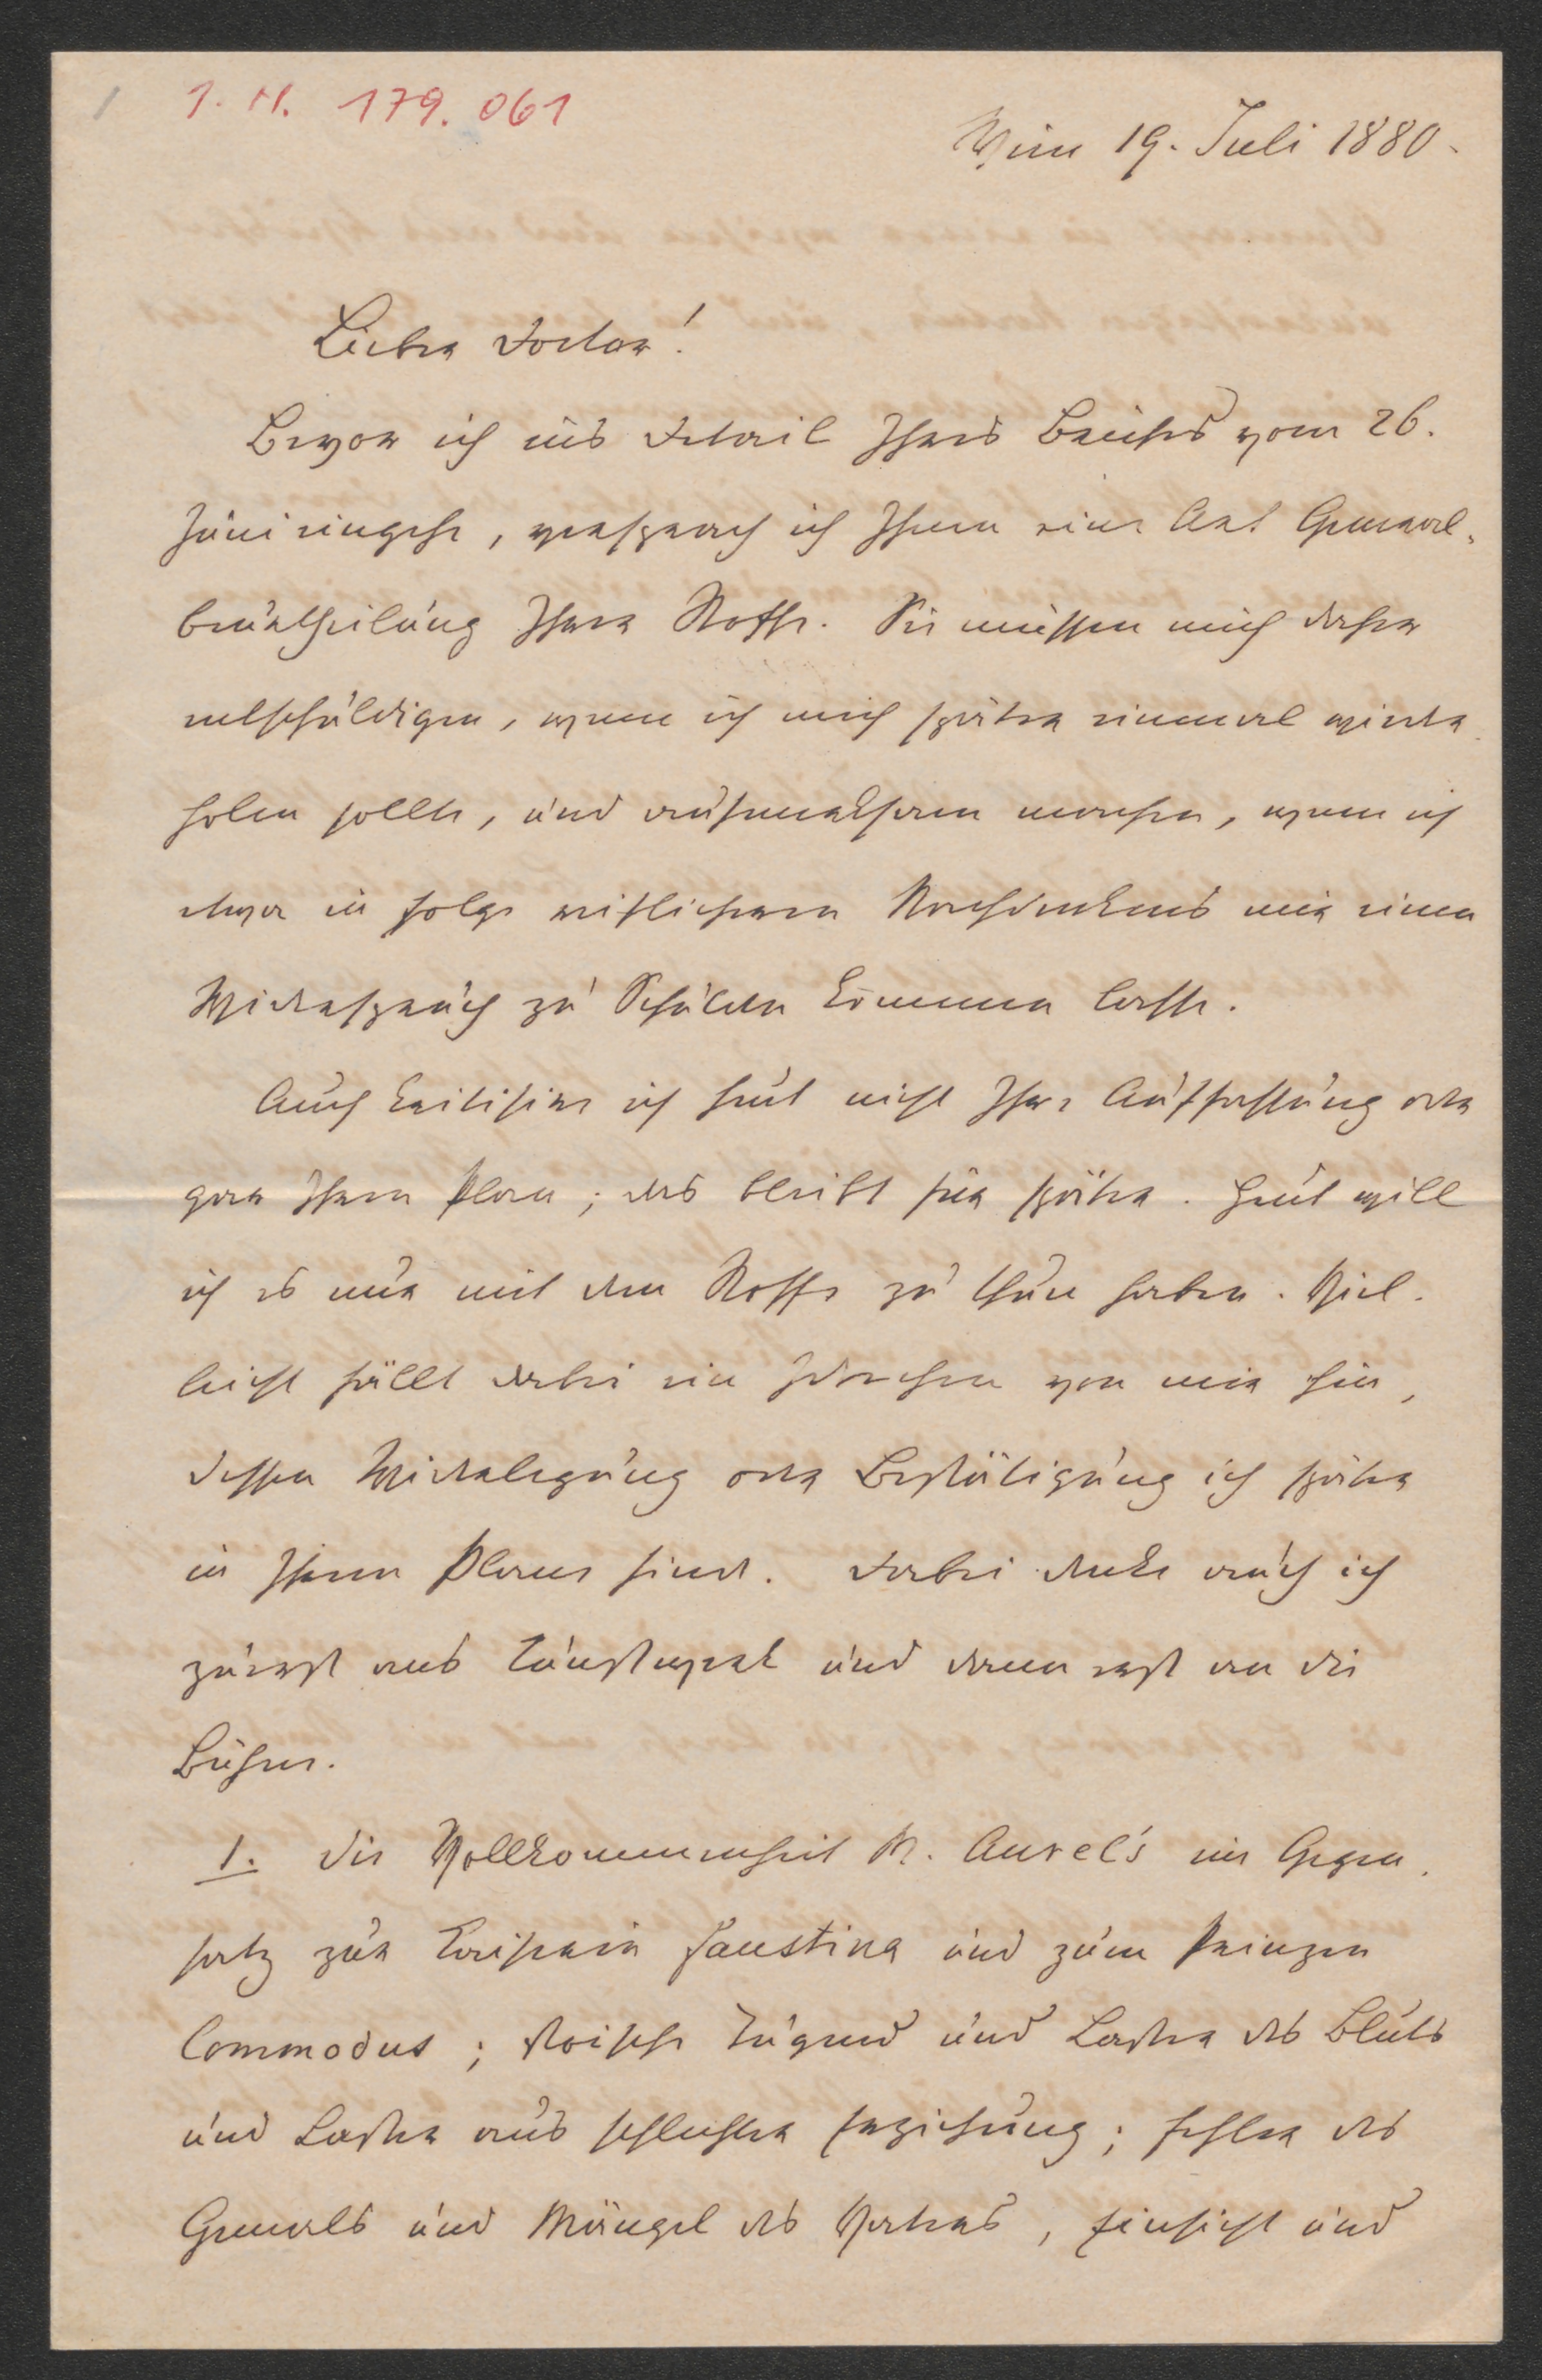 I. N. 179.061
Wien 19. Juli 1880.
Lieber Doctor!
Bevor ich ins Detail Ihres Briefes vom 26.
Juni eingehe, versprach ich Ihnen eine Art General-
beurtheilung Ihres Stoffes. Sie müssen mich daher
entschuldigen, wenn ich mich später einmal wieder-
holen sollte, und aufmerksam machen, wenn ich
etwa in Folge reiflicheren Nachdenkens mir einen
Widerspruch zu Schulden kommen lasse.
Auch kritisire ich heut nicht Ihre Auffassung oder
gar Ihren Plan; das bleibt für später. Heut will
ich es nur mit dem Stoffe zu thun haben. Viel-
leicht fällt dabei ein Ideechen von mir hin,
dessen Widerlegung oder Bestätigung ich später
in Ihrem Plane finde. Dabei denke auch ich
zuerst ans Kunstwerk und dann erst an die
Bühne.
1. Die Vollkommenheit M. Aurel's im Gegen-
satz zur Kaiserin Faustina und zum Prinzen
Commodus; stoische Tugend und Laster des Bluts
und Laster aus schlechter Erziehung; Fehler des
Gemals und Mängel des Vaters, Einsicht und